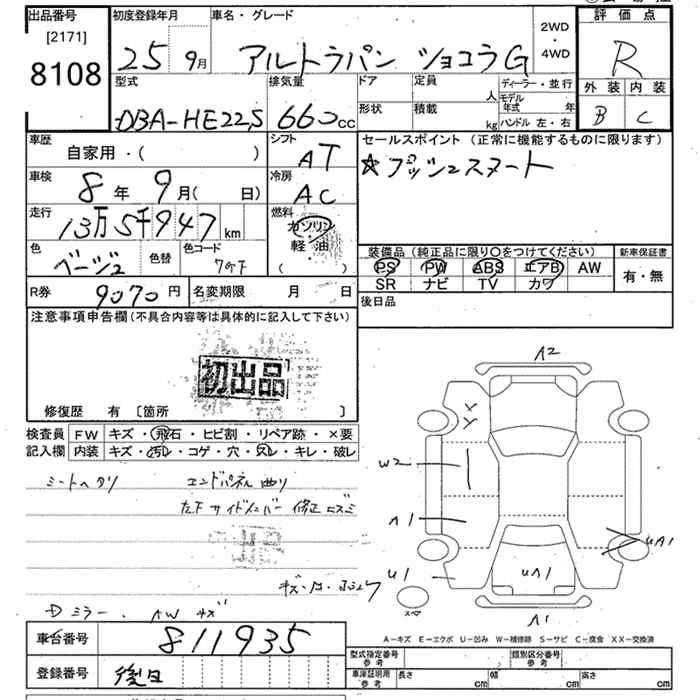 出品番号
[2171]
8108
初度登録年月
25 9月
車名・グレード
アルトラパン ショコラG
2WD
・
4WD
評価点
R
外装 内装
B C
型式
DBA-HE22S
排気量
660cc
ドア
定員
人
形状
積載
kg
ディーラー・並行
モデル年式 年
ハンドル 左・右
車歴
自家用・( )
シフト
AT
車検
8年 9月( 日)
冷房
AC
走行
13万5千947km
燃料
ガソリン
・
軽・油
( )
色
ベージュ
色替
色コード
セールスポイント (正常に機能するものに限ります)
☆プッシュスタート
装備品 (純正品に限り○をつけてください)
PS PW ABS エアB AW
SR ナビ TV カワ
新車保証書
有・無
後日品
R券 9070円
名変期限 月 日
注意事項申告欄(不具合内容等は具体的に記入して下さい)
初出品
修復歴 有 [箇所 ]
検査員記入欄
FW キズ・飛石・ヒビ割・リペア跡・×要
内装 キズ・汚レ・コゲ・穴・スレ・キレ・破レ
シートヘタリ
エンドパネル曲り
左下サイドメンバー修正ヒズミ
Dミラー、AWキズ
A2
W2
A1
U1
UA1
UA1
A1
スペア
A-キズ E-エクボ U-凹み W-補修跡 S-サビ C-腐食 XX-交換済
車台番号 811935
登録番号 後日
型式指定番号 参考
類別区分番号 参考
車庫証明用 参考
長さ cm 幅 cm 高さ cm